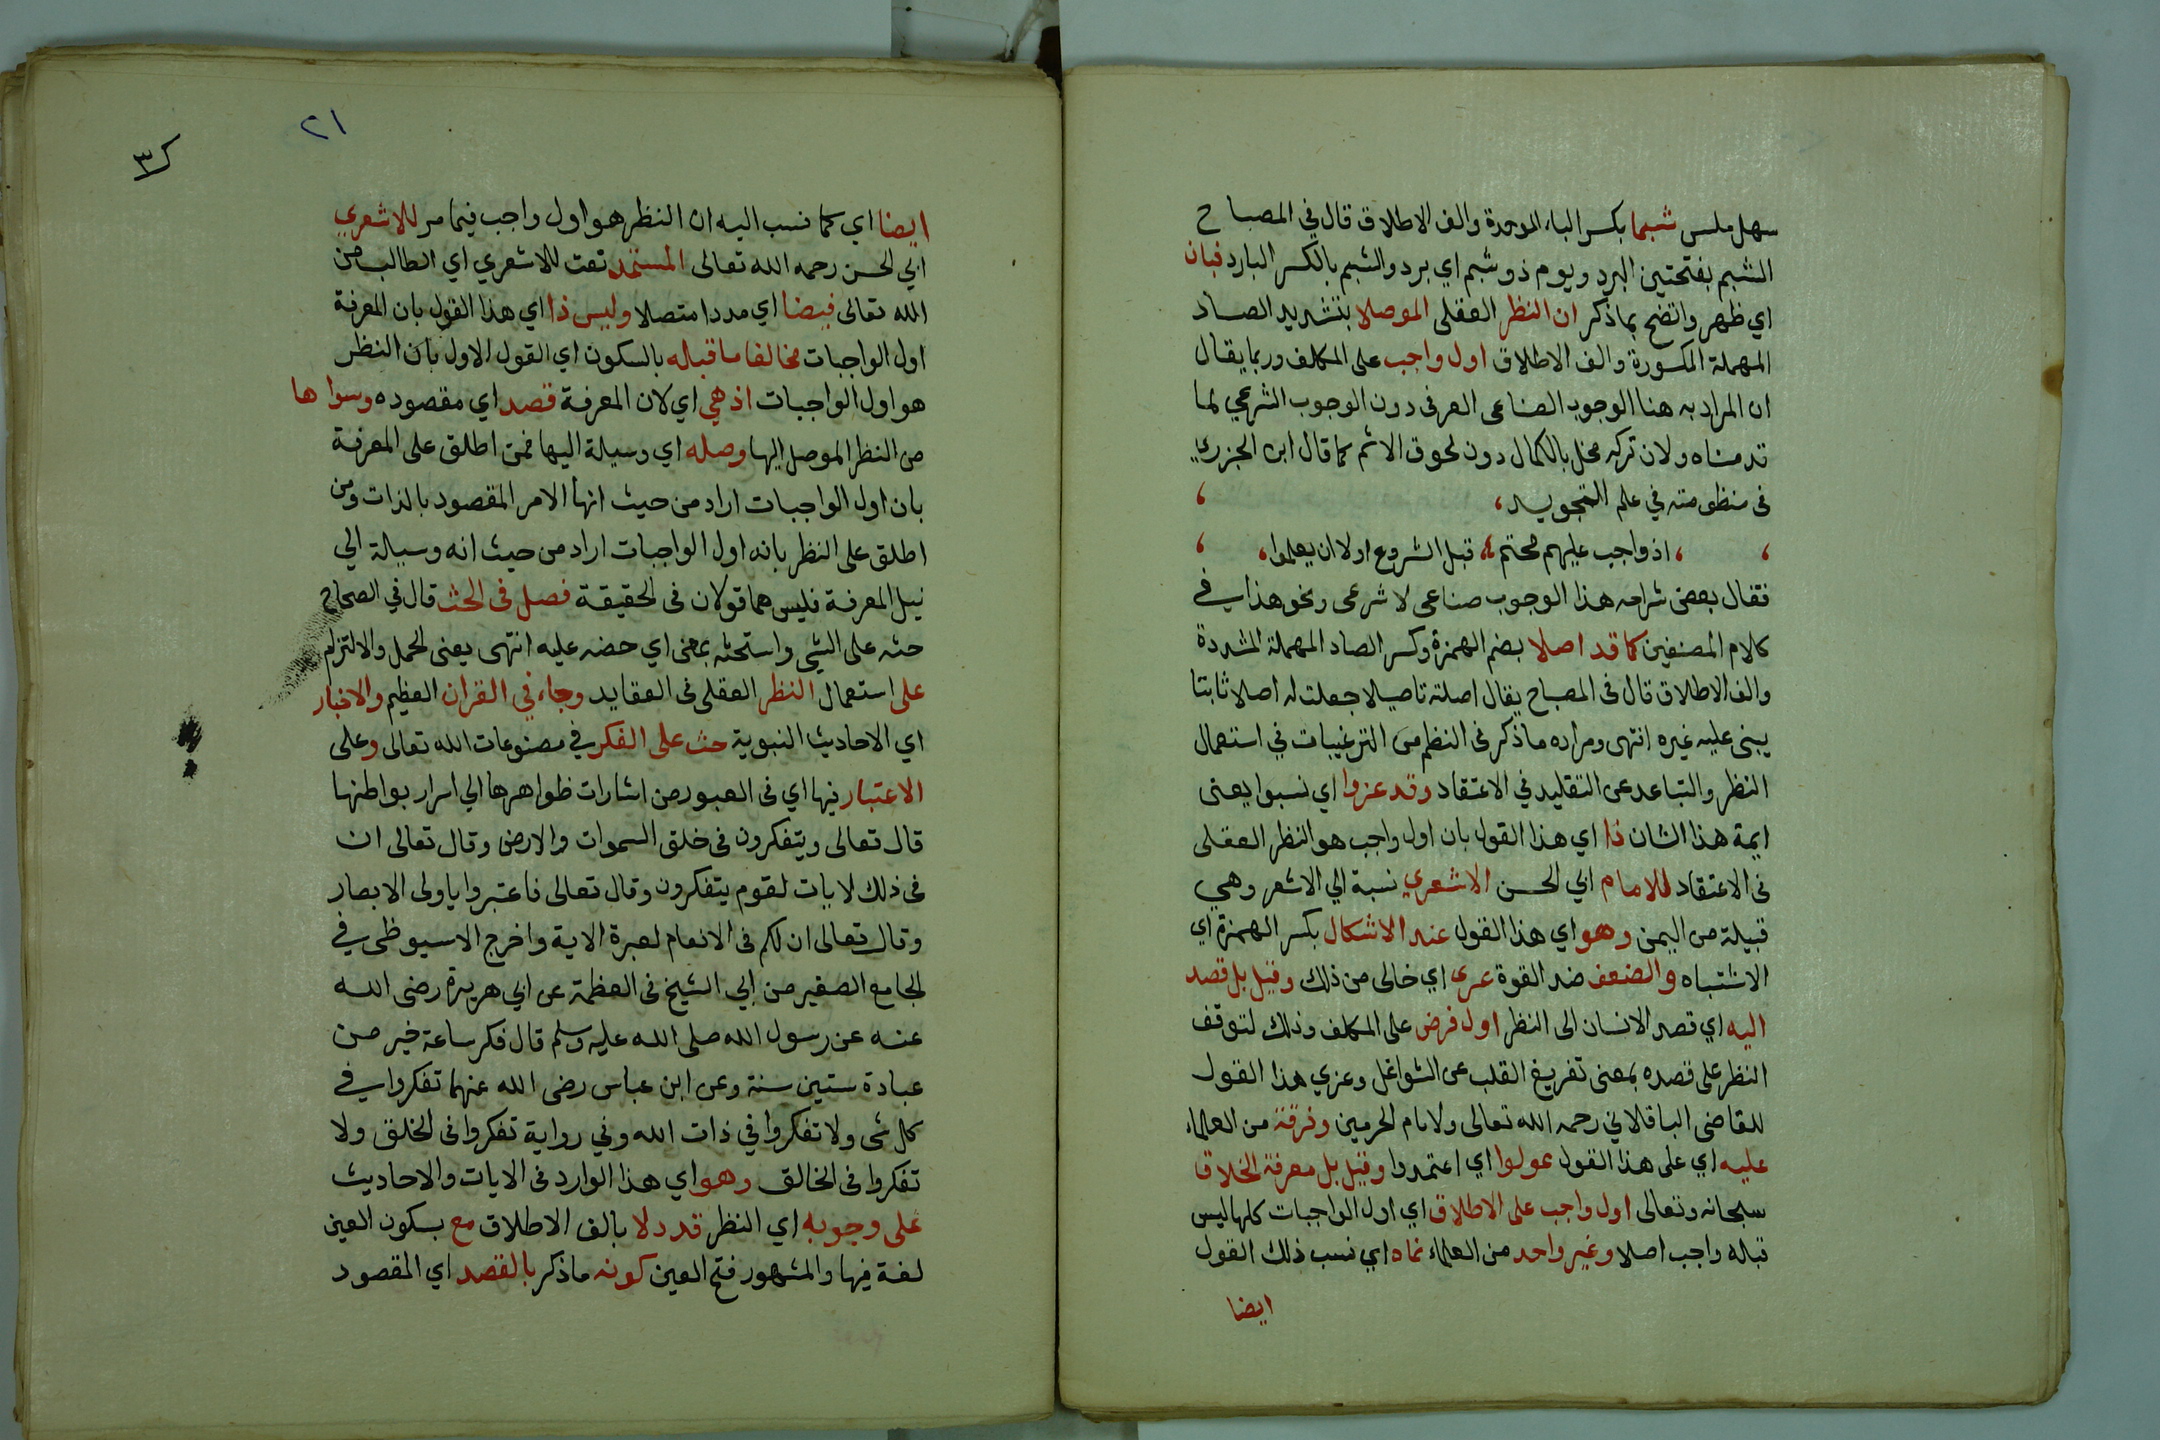 سهل ملس شبما بكسر الباء الموحدة والف الاطلاق قال في المصباح
الشبم بفتحتين البرد ويوم ذو شبم اي برد والشبم بالكسر البارد فبان
اي ظهر واتضح بما ذكر ان النظر العقلى الموصلا بتشديد الصاد
المهملة المكسورة والف الاطلاق اول واجب على المكلف وربما يقال
ان المراد به هنا الوجوب الصناعى العرفى دون الوجوب الشرعي لما
قدمناه ولان تركه مخل بالكمال دون لحوق الاثم كما قال ابن الجزري
فى منظومته في علم التجويد،
، اذ واجب عليهم محتم ،، قبل الشروع اولا ان يعلموا،
فقال بعض شراحه هذا الوجوب صناعى لا شرعى ونحو هذا في
كلام المصنفين كما قد اصلا بضم الهمزة وكسر الصاد المهملة المشددة
والف الاطلاق قال فى المصباح يقال اصلته تاصيلا جعلت له اصلا ثابتا
يبنى عليه غيره انتهى ومراده ما ذكر فى النظم من الترغيبات في استعمال
النظر والتباعد عن التقليد في الاعتقاد وقد عزوا اي نسبوا يعنى
ايمة هذا الشان ذا اي هذا القول بان اول واجب هو النظر العقلى
فى الاعتقاد للامام ابي الحسن الاشعري نسبة الي الاشعر وهي
قبيلة من اليمن وهو اي هذا القول عند الاشكال بكسر الهمزة اي
الاشتباه والضعف ضد القوة عرى اي خالى من ذلك وقيل بل قصد
اليه اي قصد الانسان الى النظر اول فرض على المكلف وذلك لتوقف
النظر على قصده بمعنى تفريغ القلب عن الشواغل وعزي هذا القول
للقاضى الباقلاني رحمه الله تعالى ولامام الحرمين وفرقة من العلماء
عليه اي على هذا القول عولوا اي اعتمدوا وقيل بل معرفة الخلاق
سبحانه وتعالى اول واجب على الاطلاق اي اول الواجبات كلها ليس
قبله واجب اصلا وغير واحد من العلماء نماه اي نسب ذلك القول
ايضا
٢١
ك٣
ايضا اي كما نسب اليه ان النظر هو اول واجب فيما مر للاشعري
ابي الحسن رحمه الله تعالى المستمد نعت للاشعري اي الطالب من
الله تعالى فيضا اي مددا متصلا وليس ذا اي هذا القول بان المعرفة
اول الواجبات مخالفا ما قبله بالسكون اي القول الاول بان النظر
هو اول الواجبات اذ هي اي لان المعرفة قصد اي مقصوده وسواها
من النظر الموصل اليها وصله اي وسيلة اليها فمن اطلق على المعرفة
بان اول الواجبات اراد من حيث انها الامر المقصود بالذات ومن
اطلق على النظر بانه اول الواجبات اراد من حيث انه وسيلة الي
نيل المعرفة فليس هما قولان فى الحقيقة فصل فى الحث قال في الصحاح
حثه على الشي واستحثه بمعنى اي حضه عليه انتهى يعنى الحمل والالتزام
على استعمال النظر العقلى فى العقايد وجاء في القران العظيم والاخبار
اي الاحاديث النبوية حث على الفكر في مصنوعات الله تعالى وعلى
الاعتبار فيها اي فى العبور من اشارات ظواهرها الي اسرار بواطنها
قال تعالى ويتفكرون فى خلق السموات والارض وقال تعالى ان
فى ذلك لايات لقوم يتفكرون وقال تعالى فاعتبروا ياولى الابصار
وقال تعالى ان لكم فى الانعام لعبرة الاية واخرج الاسيوطى في
الجامع الصغير من ابي الشيخ فى العظمة عن ابي هريرة رضى الله
عنه عن رسول الله صلى الله عليه وسلم قال فكر ساعة خير من
عبادة ستين سنة وعن ابن عباس رضى الله عنهما تفكروا في
كل شى ولا تفكروا في ذات الله وفي رواية تفكروا فى الخلق ولا
تفكروا فى الخالق وهو اي هذا الوارد فى الايات والاحاديث
على وجوبه اي النظر قد دلا بالف الاطلاق مع بسكون العين
لغة فيها والمشهور فتح العين كونه ما ذكر بالقصد اي المقصود